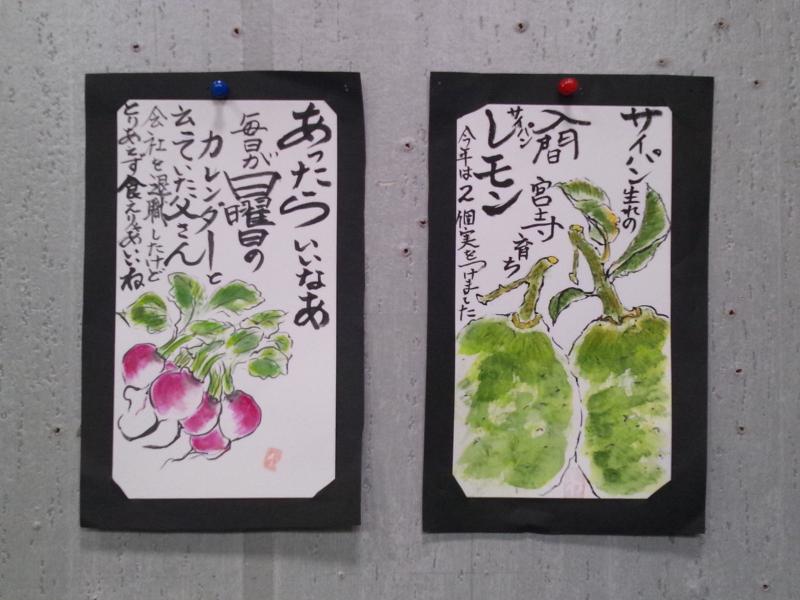 あったらいいなあ
毎日が日曜日の
カレンダーと
云っていた父さん
会社を退職したけど
とりあえず食えりゃあいいね
サイパン生れの
入間 宮寺 育ち
サイパン
レモン
今年は2個実をつけました